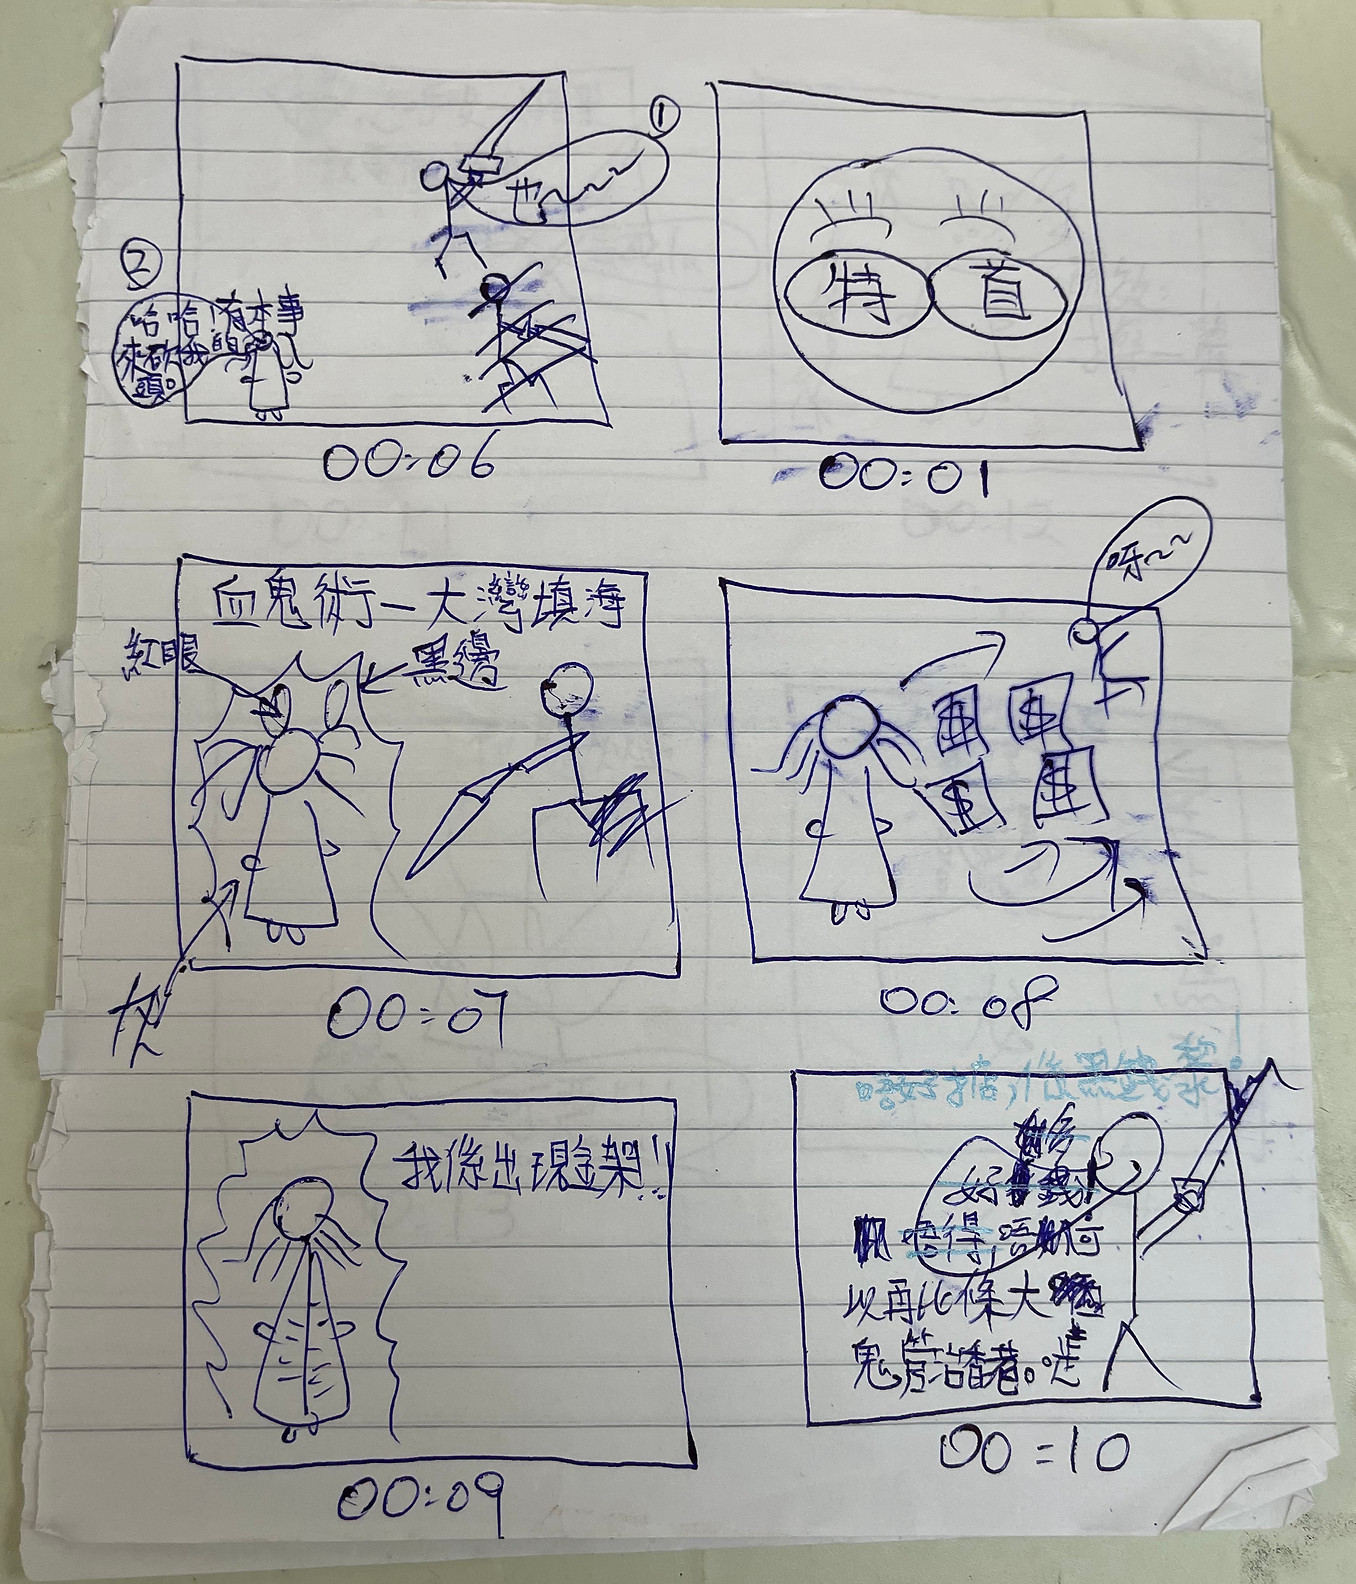 ①
也~~~
②
哈哈!有本事
來砍我的
頭。
00:06
特 首
00:01
血鬼術—大灣填海
紅眼
黑邊
00:07
呀~~
$ $
$ $
00:08
我係出現金架!!
00:09
唔好掂,係黑錢黎!
好 錢
唔得,唔 可
以再比條大
鬼管治香港。
00:10